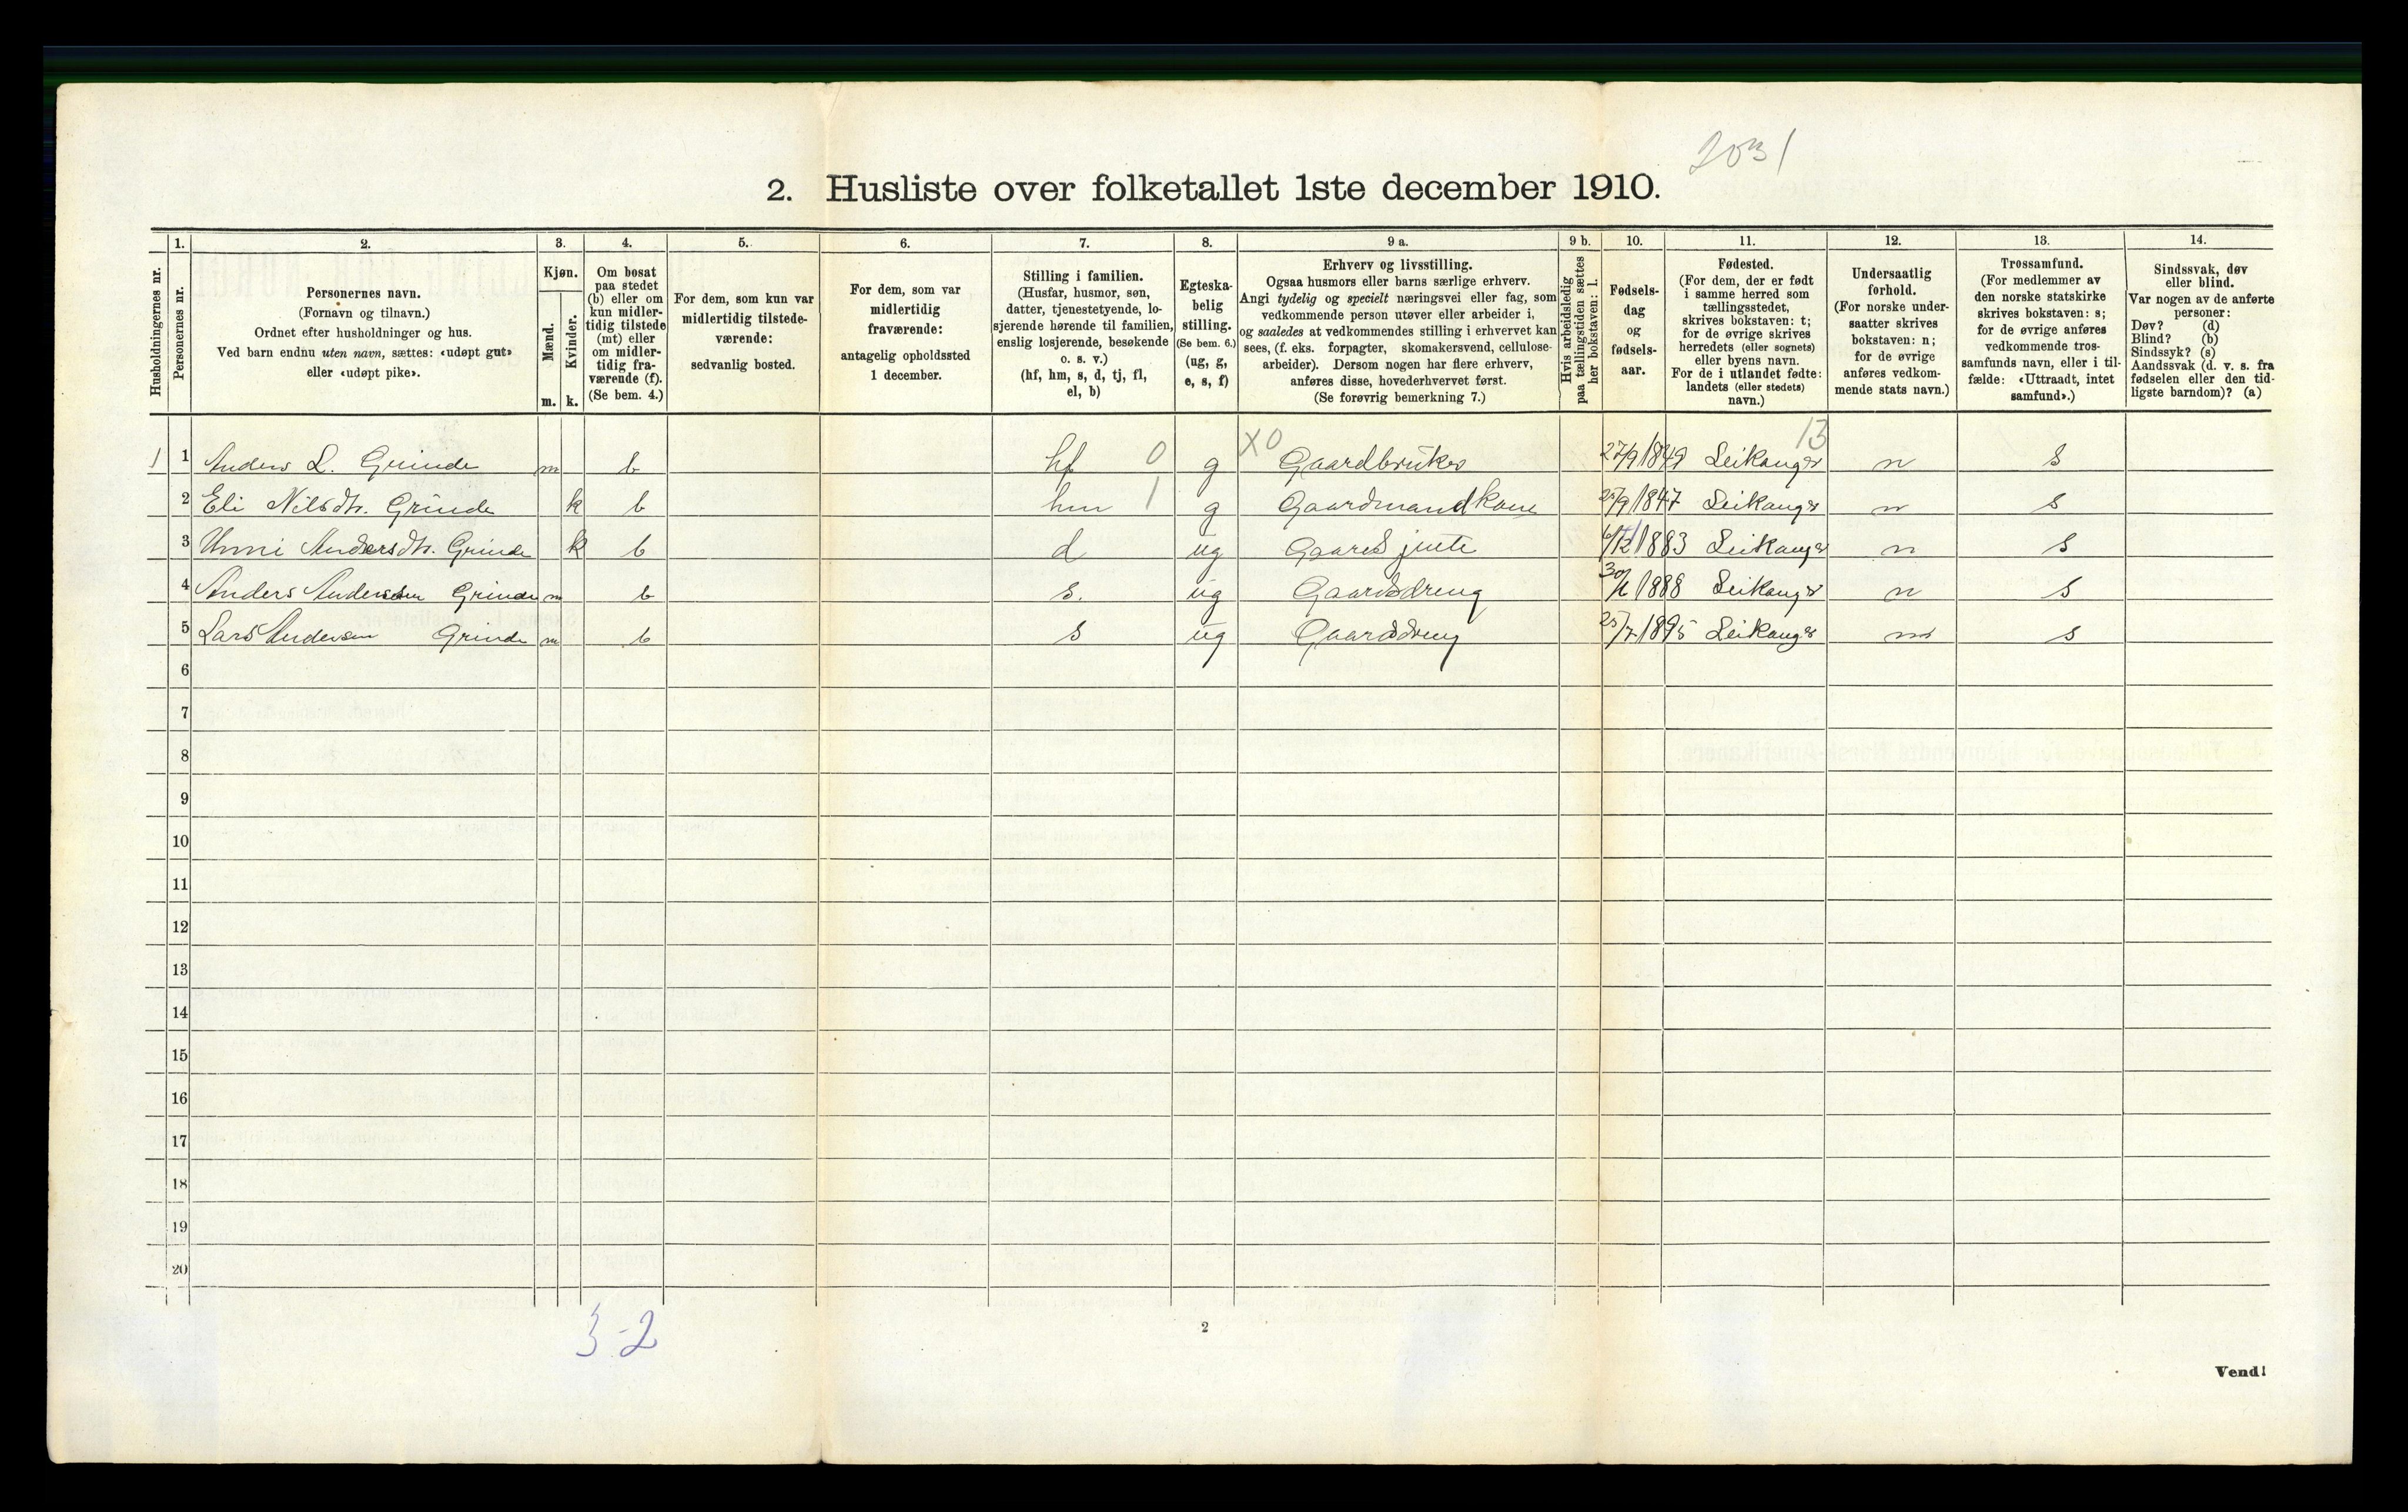 2031
2. Husliste over folketallet 1ste december 1910.
Husholdningernes nr.
1.
Personernes nr.
2.
Personernes navn.
(Fornavn og tilnavn.)
Ordnet efter husholdninger og hus.
Ved barn endnu uten navn, sættes: «udøpt gut»
eller «udøpt pike».
3.
Kjøn.
Mænd.
Kvinder.
m. k.
4.
Om bosat
paa stedet
(b) eller om
kun midler-
tidig tilstede
(mt) eller
om midler-
tidig fra-
værende (f).
(Se bem. 4.)
5.
For dem, som kun var
midlertidig tilstede-
værende:
sedvanlig bosted.
6.
For dem, som var
midlertidig
fraværende:
antagelig opholdssted
1 december.
7.
Stilling i familien.
(Husfar, husmor, søn,
datter, tjenestetyende, lo-
sjerende hørende til familien,
enslig losjerende, besøkende
o. s. v.)
(hf, hm, s, d, tj, fl,
el, b)
8.
Egteska-
belig
stilling.
(Se bem. 6.)
(ug, g,
e, s, f)
9 a.
Erhverv og livsstilling.
Ogsaa husmors eller barns særlige erhverv.
Angi tydelig og specielt næringsvei eller fag, som
vedkommende person utøver eller arbeider i,
og saaledes at vedkommendes stilling i erhvervet kan
sees, (f. eks. forpagter, skomakersvend, cellulose-
arbeider). Dersom nogen har flere erhverv,
anføres disse, hovederhvervet først.
(Se forøvrig bemerkning 7.)
9 b.
Hvis arbeidsledig
paa tællingstiden sættes
her bokstaven: l.
10.
Fødsels-
dag
og
fødsels-
aar.
11.
Fødested.
(For dem, der er født
i samme herred som
tællingsstedet,
skrives bokstaven: t;
for de øvrige skrives
herredets (eller sognets)
eller byens navn.
For de i utlandet fødte:
landets (eller stedets)
navn.)
12.
Undersaatlig
forhold.
(For norske under-
saatter skrives
bokstaven: n;
for de øvrige
anføres vedkom-
mende stats navn.)
13.
Trossamfund.
(For medlemmer av
den norske statskirke
skrives bokstaven: s;
for de øvrige anføres
vedkommende tros-
samfunds navn, eller i til-
fælde: «Uttraadt, intet
samfund».)
14.
Sindssvak, døv
eller blind.
Var nogen av de anførte
personer:
Døv? (d)
Blind? (b)
Sindssyk? (s)
Aandssvak (d. v. s. fra
fødselen eller den tid-
ligste barndom)? (a)
X0 13
1 1 Anders L. Grinde m b hf 0 g Gaardbruker 27/9 1849 Leikanger n s
2 Eli Nilsdtr. Grinde k b hm 1 g Gaardmandkone 25/9 1847 Leikanger n s
3 Unni Andersdtr. Grinde k b d ug Gaardsjente 1883 Leikanger n s
4 Anders Andersen Grinde m b s. ug Gaardsdreng 1888 Leikanger n s
5 Lars Andersen Grinde m b s ug Gaarddreng 25/7 1895 Leikanger n s
6
7
8
9
10
11
12
13
14
15
16
17
18
19
20
3-2
2
Vend!